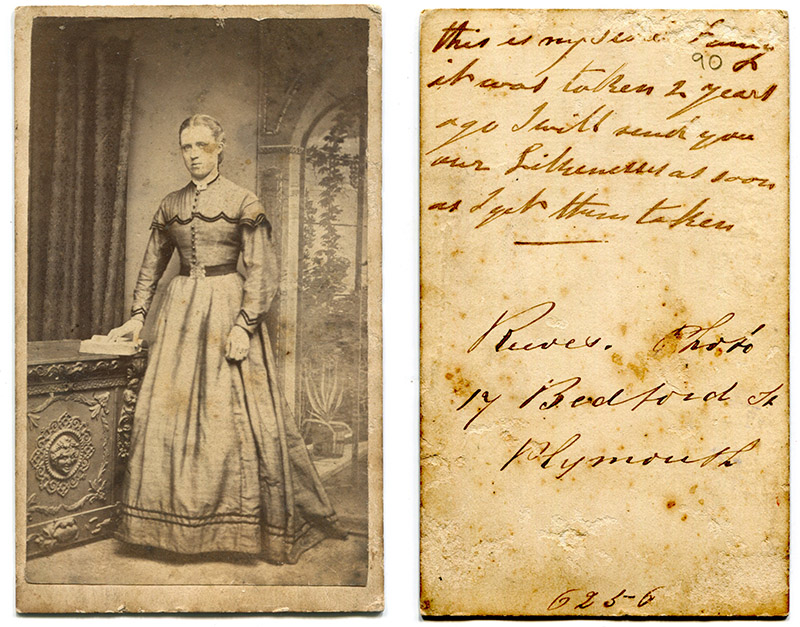 this is my
90
it was taken 2 years
ago I will send you
our Likenesses as soon
as I get them taken
Reeves. Photo
17 Bedford St
Plymouth
6256